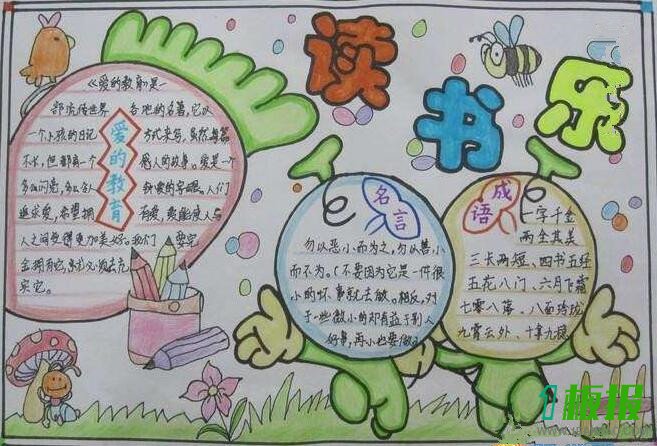 读书乐
《爱的教育》是一
部流传世界各地的名著,它以
一个小孩的日记方式来写,虽然每篇
不长,但都有一个感人的故事。爱是一个
多么闪亮,多么令人钟爱的字眼。人们
追求爱,希望拥有爱,爱能使人与
人之间变得更加美好。我们要完
全拥有它,就必须去充
实它。
爱的教育
名言
勿以恶小而为之,勿以善小
而不为。(不要因为它是一件很
小的坏事就去做。相反,对
于一些微小的却有益于别人
好事,再小也要做。)
成语
一字千金
两全其美
三长两短、四书五经
五花八门、六月飞霜
七零八落、八面玲珑
九霄云外、十拿九稳
板报